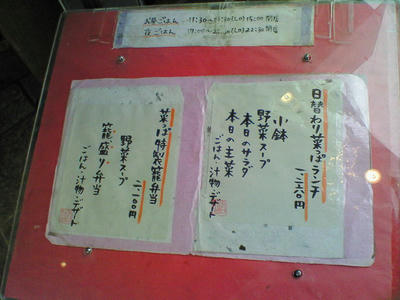 お昼ごはん 11:30〜 (L.O) 15:00 閉店
夜ごはん 17:00〜 (L.O) 22:30 閉店
日替わり菜っぱランチ
一、二六〇円
小鉢
野菜スープ
本日のサラダ
本日の主菜
ごはん・汁物・デザート
菜っぱ特製籠弁当
二、一〇〇円
野菜スープ
籠盛り弁当
ごはん・汁物・デザート